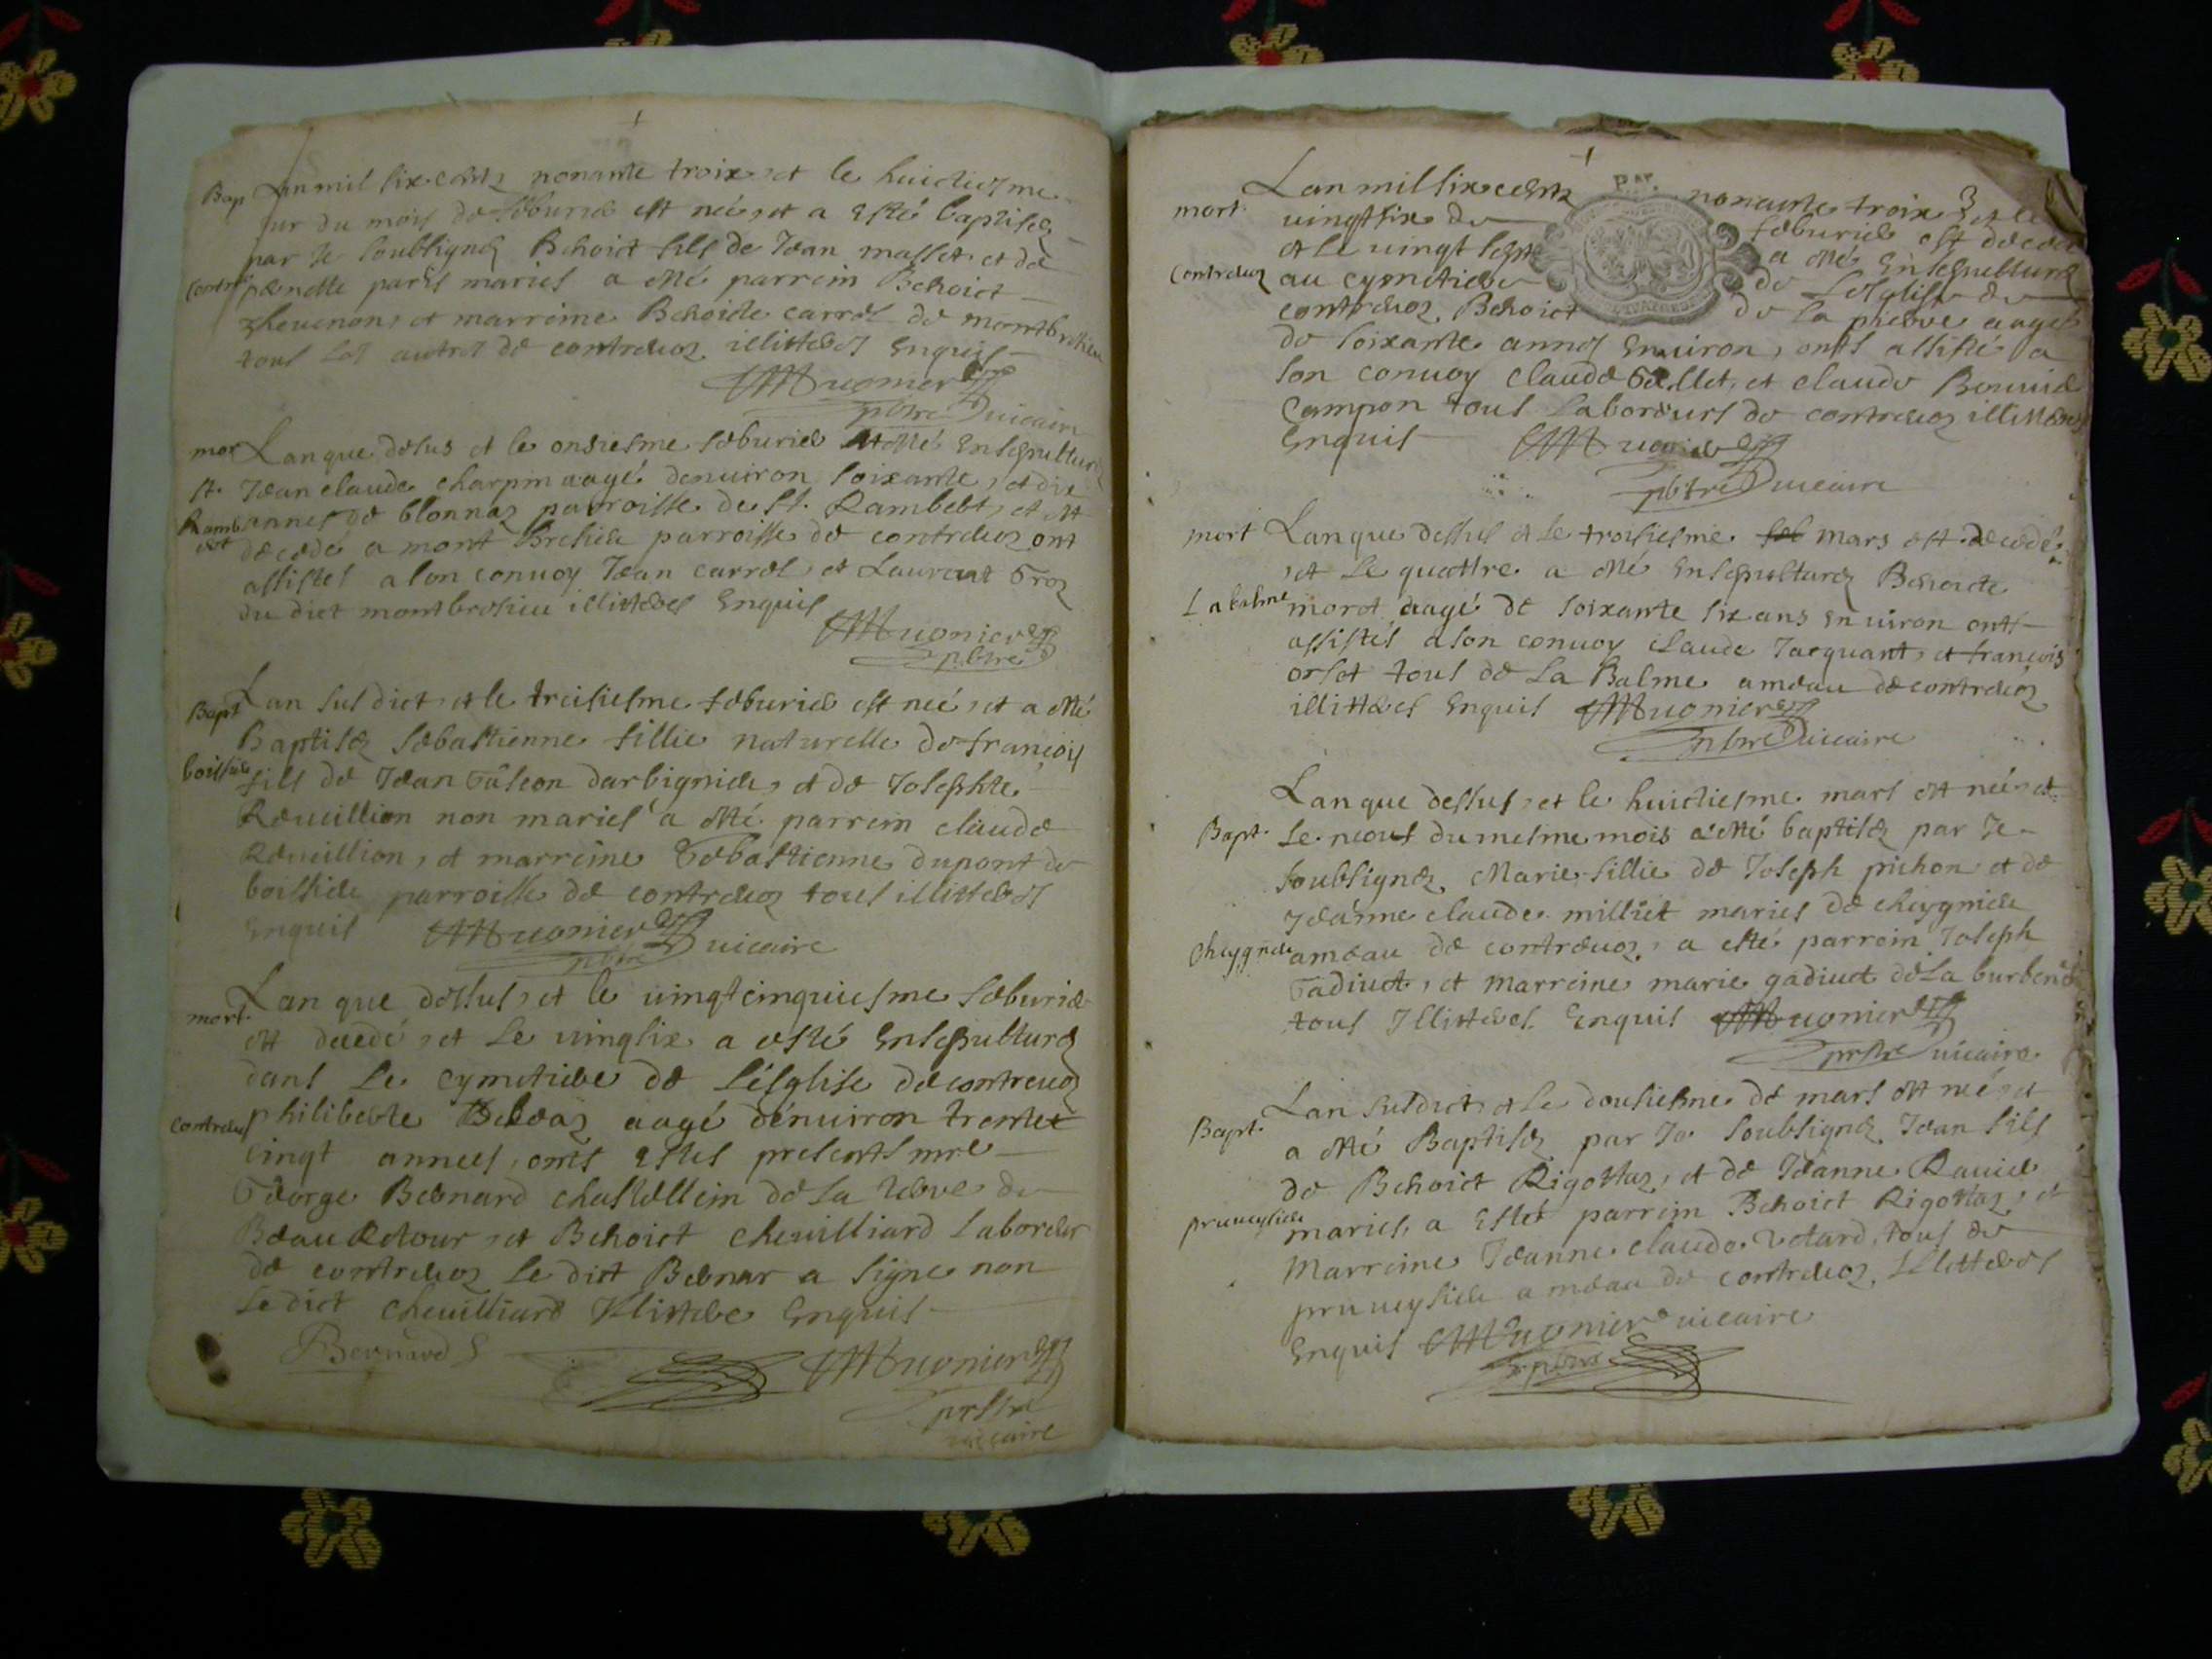 Bap Lan mil six cents nonante troix et le huictiesme
jur du mois de feburier est née et a esté baptisez
par Je soubsignez Benoict fils de Jean masset et de
Contre pernette paris mariés a esté parrein Benoict
thevenon et marreine Benoicte carrel de montbretieu
tous les autres de contrevoz illitteres Enquis
Mugnier
pbtre vicaire
mor Lan que desus et le onsiesme feburier a esté Ensepulturez
St. Jean claude charpin aagé denuiron soixante et dix
Ramb annes de blonnaz parroisse de St. Rambert et est
ert decede a mont Bretieu parroisse de contreuoz ont
assistes a son conuoy Jean carrel et Laurent Troz
du dict montbretieu illitteres Enquis
Mugnier
pbtre
Bapt Lan susdict et le treisiesme feburier est née et a esté
Baptisez sebastienne fillie naturelle de françois
boissiele fils de Jean falcon darbignieu et de Josephte
Reveillion non mariés a esté parrein claude
Reveillion et marreine sebastienne dupont de
boissiele parroisse de contreuoz tous illitteres
Enquis Mugnier vicaire
pbtre
mort. Lan que dessus et le uingt cinquiesme feburier
est decedé et Le uingsix a esté Ensepulturez
dans Le cymetiere de Lésglise de contreuoz
contreu philiberte Beldaz aagé dénuiron trente
cinqt annees onts Estes presents mre
George Bernard chastellein de La Terre de
Beau Retour et Benoict cheuilliard Laboreur
de contreuoz Le dict Bernar a signe non
Le dict cheuilliard Illittere Enquis
Bernard
Mugnier
prstre
viccaire
Lan mil six cents nonante troix 3 et le
mort. uingtsix de feburier est decede
et Le uingt sept a esté Ensepulturez
Contreuoz au cymetiere de Lésglise de
contreuoz Benoict de La pierre aagé
de soixante annes Enuiron, onts assisté a
son conuoy claude Gallet et claude Bouuier
Campon tous Laboreurs de contreuoz illitteres
Enquis Mugnier
pbtre vicaire
mort Lan que dessus et le troisiesme feb mars est decedé
et Le quattre a esté Ensepulturez Benoicte
Labalme morot aagé de soixante six ans Enuiron onts
assistés a son conuoy claude Jacquant et françois
orset tous de La Balme ameau de contreuoz
illitteres Enquis Mugnier
pbtre vicaire
Lan que dessus et le huictiesme mars est née et
Bapt. Le neouf du mesme mois a esté baptisez par Je
soubsignez Marie fillie de Joseph pichon et de
Jeanne claude milliet mariés de cheygnieu
Cheygnieu ameau de contreuoz, a esté parrein Joseph
Gadiuet, et marreine marie gadiuet de La burbenche
tous Illitteres Enquis Mugnier
prstre vicaire
Lan susdict et Le dousiesme de mars est né et
Bapt. a esté Baptisez par Je soubsignez Jean fils
de Benoict Rigottaz et de Jeanne Rauier
pruueysieu mariés, a Esté parrein Benoict Rigottaz et
Marreine Jeanne claude Votard tous de
pruueysieu ameau de contreuoz Illitteres
Enquis Mugnier vicaire
pbtre